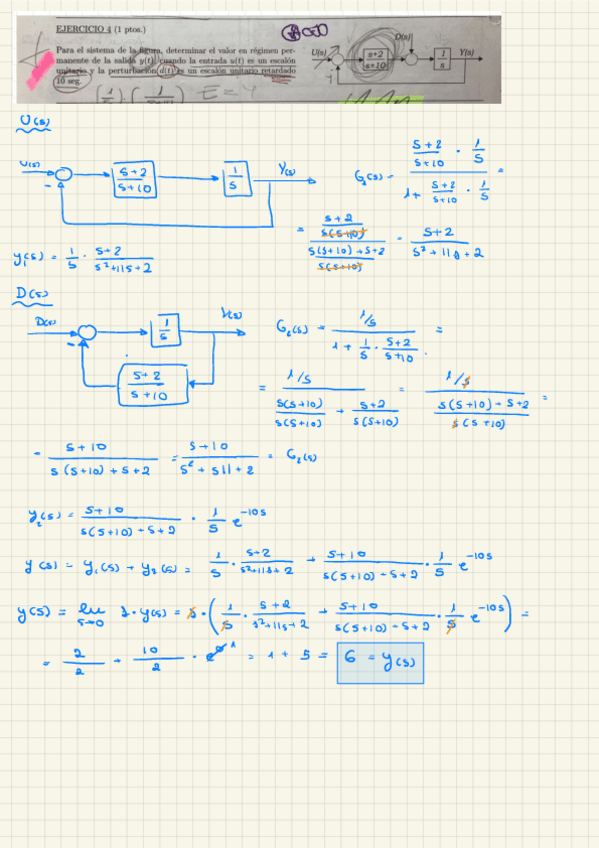 EJERCICIO 4 (1 ptos.)
Para el sistema de la figura, determinar el valor en régimen per-
manente de la salida y(t), cuando la entrada u(t) es un escalón
unitario y la perturbación d(t) es un escalón unitario retardado
10 seg.
U(s) s+2 / s+10 D(s) 1/s Y(s)
U(s)
U(s) - s+2 / s+10 1/s Y(s)
G₁(s) = (s+2 / s+10 · 1/s) / (1 + s+2 / s+10 · 1/s) =
= (s+2 / s(s+10)) / (s(s+10)+s+2 / s(s+10)) = s+2 / s²+11s+2
y₁(s) = 1/s · s+2 / s²+11s+2
D(s)
D(s) - 1/s Y(s) s+2 / s+10
G₂(s) = (1/s) / (1 + 1/s · s+2 / s+10) =
= (1/s) / (s(s+10) / s(s+10) + s+2 / s(s+10)) = (1/s) / (s(s+10)+s+2 / s(s+10)) =
= s+10 / s(s+10)+s+2 = s+10 / s²+s11+2 = G₂(s)
y₂(s) = s+10 / s(s+10)+s+2 · 1/s e^-10s
y(s) = y₁(s) + y₂(s) = 1/s · s+2 / s²+11s+2 + s+10 / s(s+10)+s+2 · 1/s e^-10s
y(s) = lim s→0 s·y(s) = s·(1/s · s+2 / s²+11s+2 + s+10 / s(s+10)+s+2 · 1/s e^-10s) =
= 2/2 + 10/2 · e⁰ 1 = 1 + 5 = 6 = y(s)